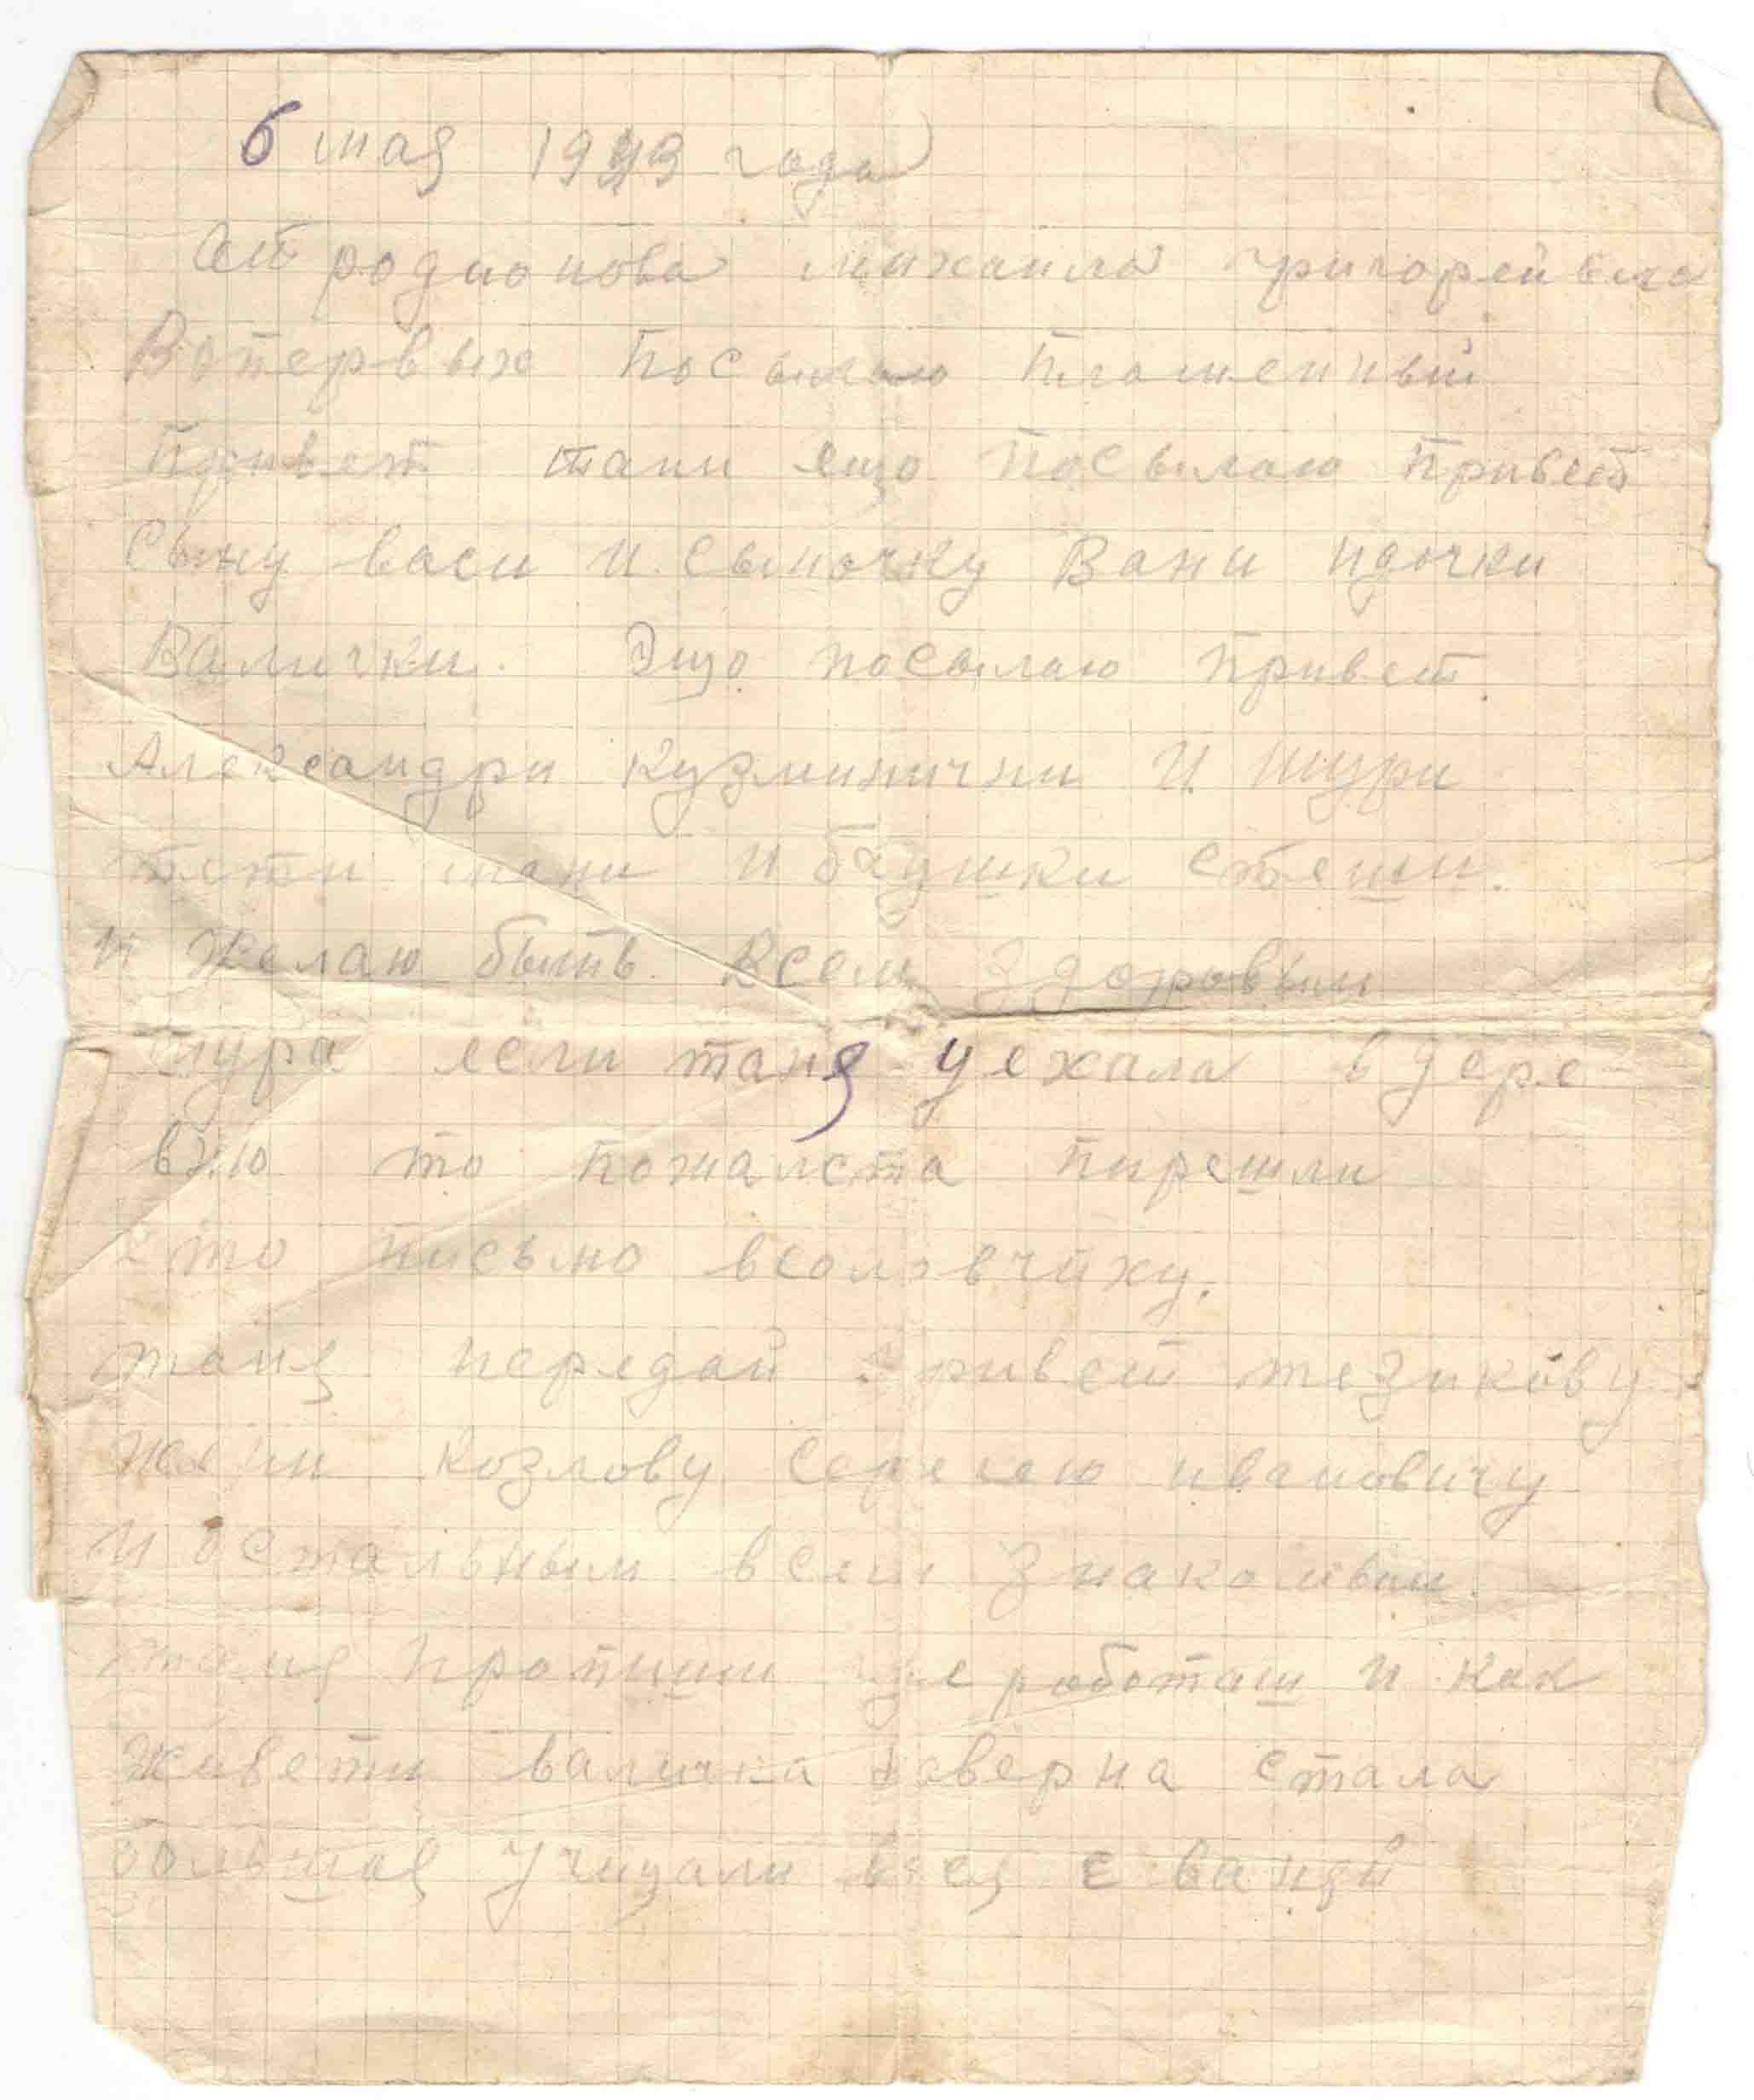 6 мая 1943 года
От родионова михаила григорейвеча
Вопервых посылаю пламенный
привет тани ещо посылаю привет
Сыну васи и сыночку Вани идочки
Валички. Эщо посылаю привет
Александри кузминични и шури
тети мани и баушки стеши.
и желаю быть всем здоровым
шура если таня уехала в дере
вню то пожалста пирешли
это письмо всоловчиху.
таня передай привет тезикову
жени козлову сергею ивановичу
и остальным всем знакомым.
таня пропиши где роботаш и как
живети валичка наверна стала
большая